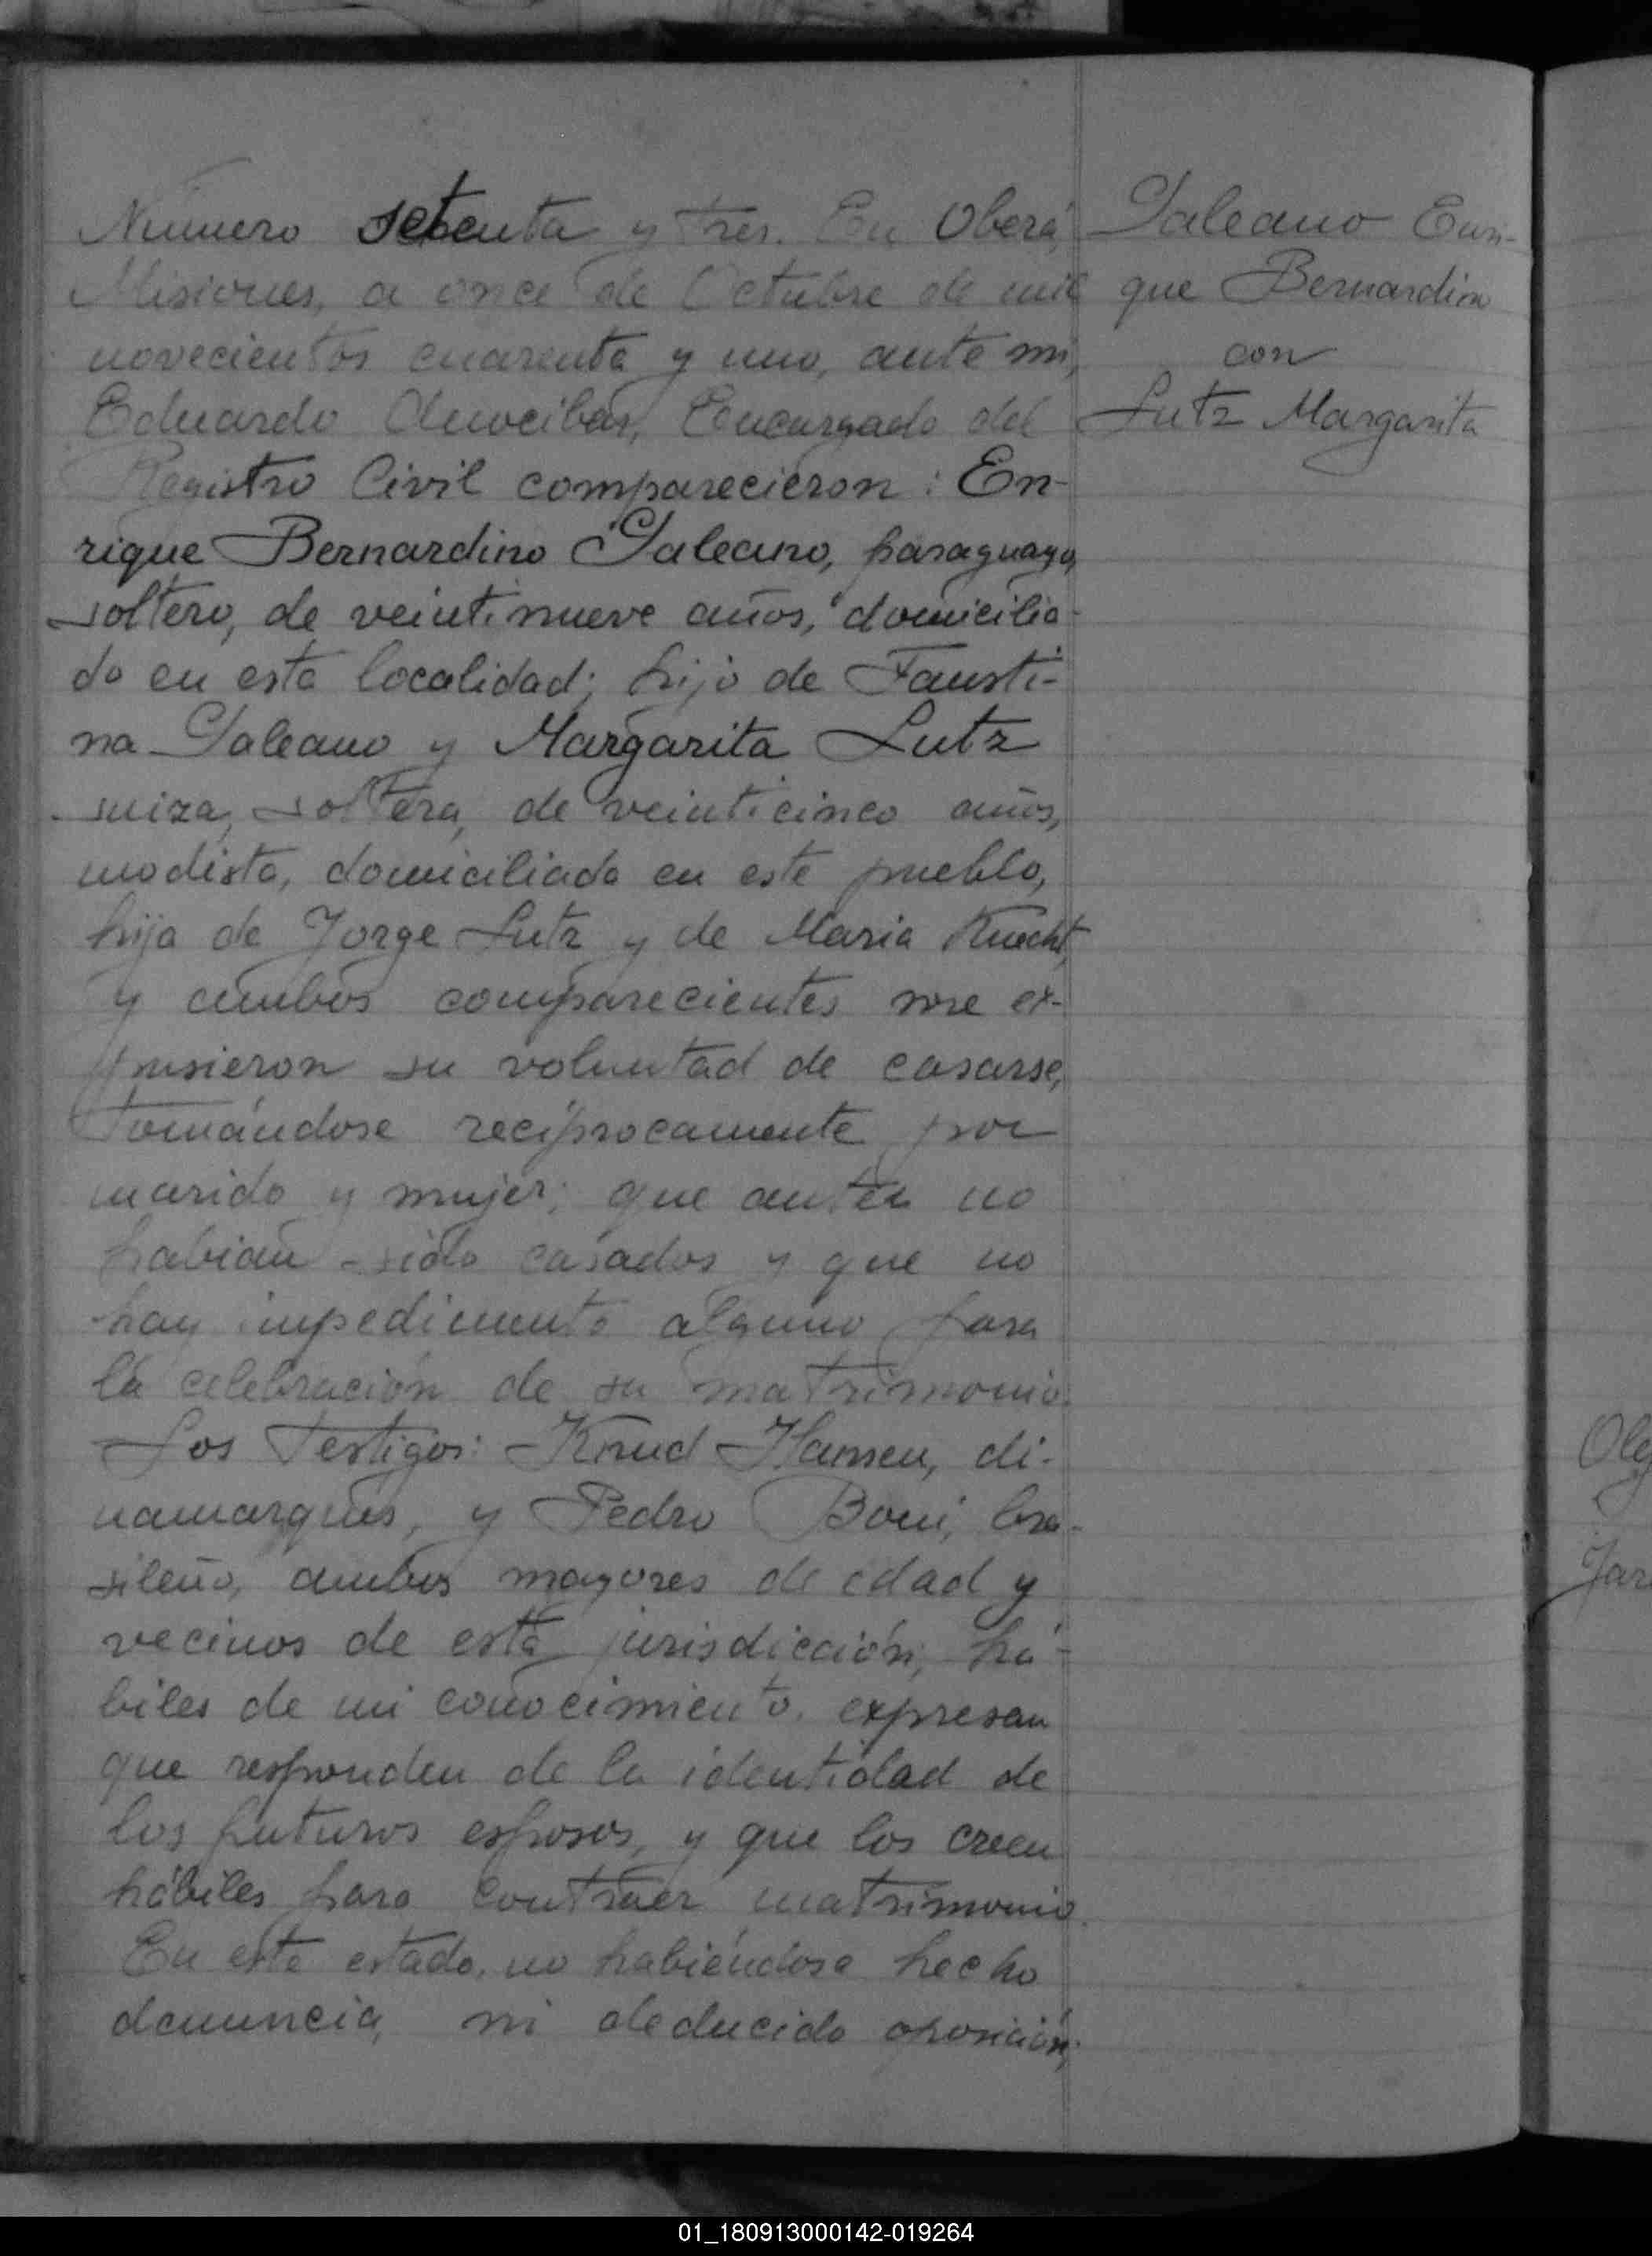 Número setenta y tres. En Oberá,
Misiones, a once de Octubre de mil
novecientos cuarenta y uno, ante mi,
Eduardo Encargado del
Registro Civil comparecieron: En-
rique Bernardino Galeano, paraguayo,
soltero, de veintinueve años, domicilia-
do en esta localidad; hijo de Fausti-
na Galeano y Margarita Lutz
suiza, soltera, de veinticinco años,
modista, domiciliada en este pueblo,
hija de Jorge Lutz y de Maria Knecht,
y ambos comparecientes me ex-
pusieron su voluntad de casarse,
tomándose recíprocamente por
marido y mujer; que antes no
habian sido casados y que no
hay impedimento alguno para
la celebración de su matrimonio.
Los Testigos: Knud Hansen, di-
namarqués, y Pedro Boni, bra-
sileño, ambos mayores de edad y
vecinos de esta jurisdicción, há-
biles de mi conocimiento, expresan
que responden de la identidad de
los futuros esposos, y que los creen
hábiles para contraer matrimonio.
En este estado, no habiéndose hecho
denuncia, ni deducido oposición;
Galeano Enri-
que Bernardino
con
Lutz Margarita
01_180913000142-019264